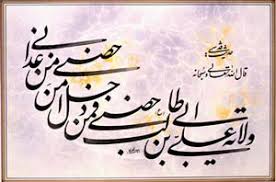 قال الله تعالی و سبحانه
ولایة علی بن ابی طالب حصنی فمن دخل حصنی امن من عذابی